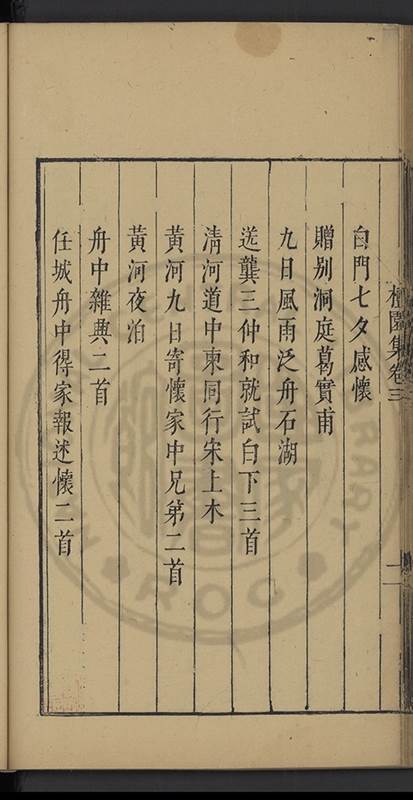 園集卷三
白門七夕感懷
贈别洞庭葛實甫
九日風雨泛舟石湖
送龔三仲和就試白下三首
清河道中柬同行宋上木
黃河九日寄懷家中兄弟二首
黃河夜泊
舟中雜興二首
任城舟中得家報述懷二首